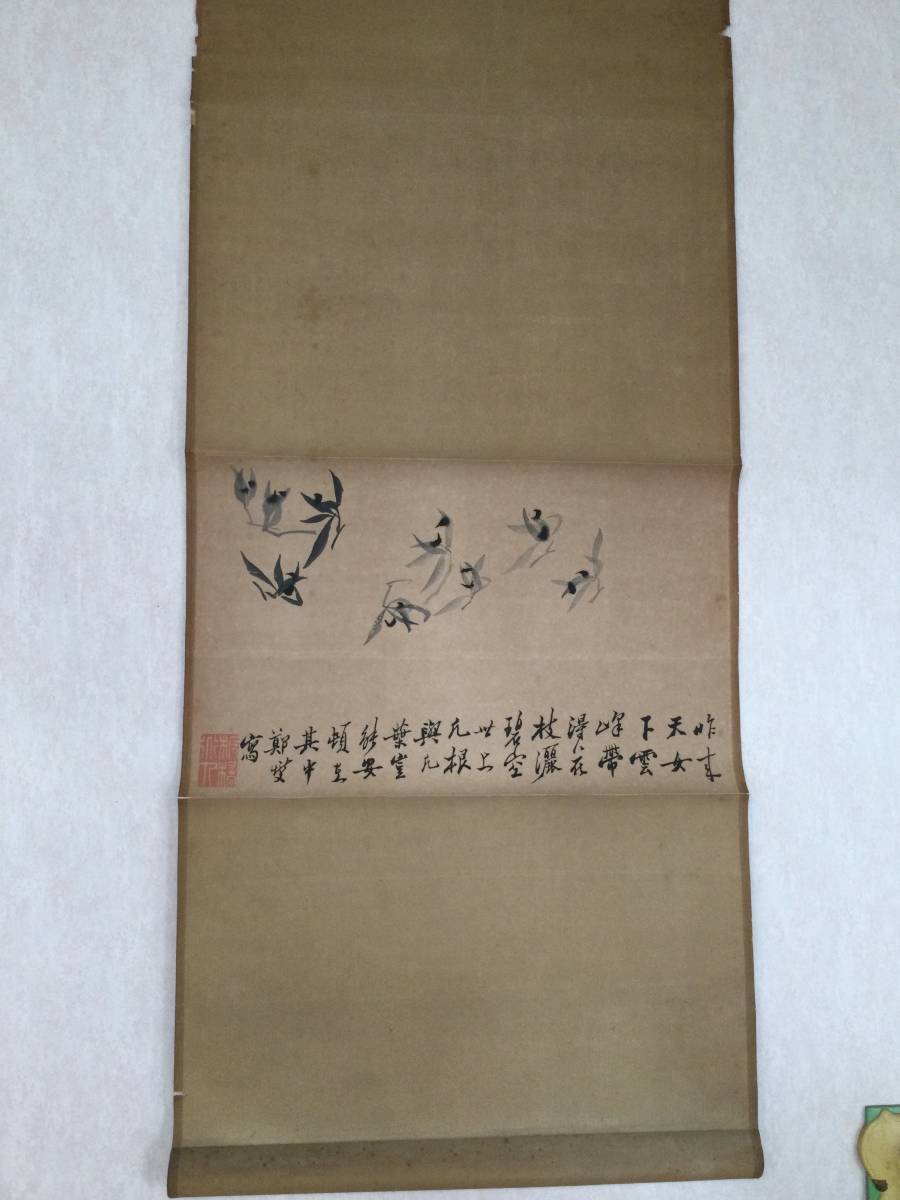 昨來
天女
下雲
峰帶
得花
枝灑
碧空
世上
凡根
與凡
葉豈
能安
頓在
其中
鄭燮
寫